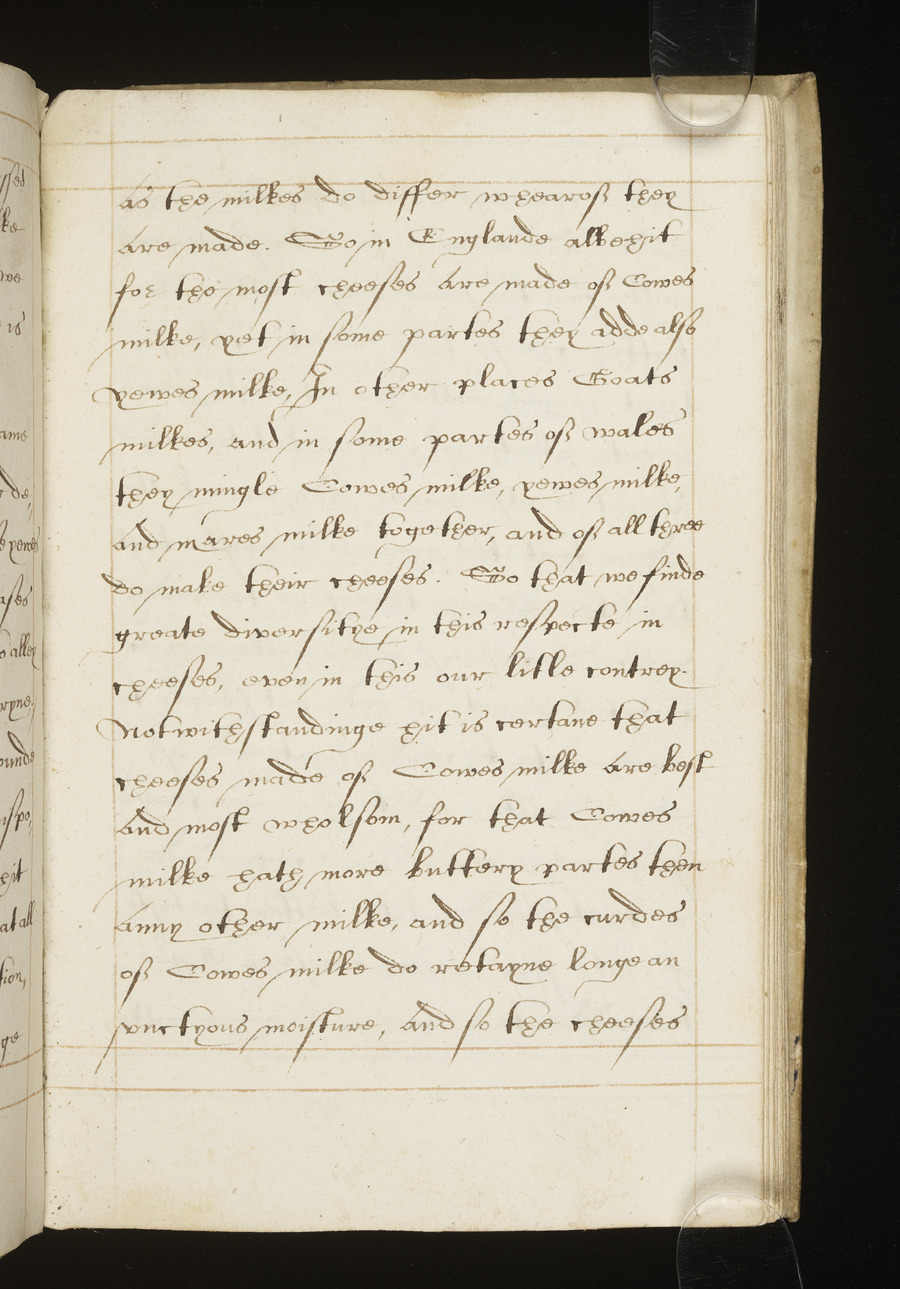 as the milkes do differ whearof they
are made. So in Englande albehit
for the most cheeses are made of Cowes
milke, yet in some partes they adde also
yewes milke, In other places Goats
milkes, and in some partes of wales
they mingle Cowes milke, yewes milke,
and mares milke together, and of all three
do make their cheeses. So that we finde
greate diversitye in this respecte in
cheeses, even in this our litle contrey.
Notwithstandinge hit is certane that
cheeses made of Cowes milke are best
and most wholsom, for that Cowes
milke hath more buttery partes then
anny other milke, and so the curdes
of Cowes milke do retayne longe an
vnctyous moisture, and so the cheeses